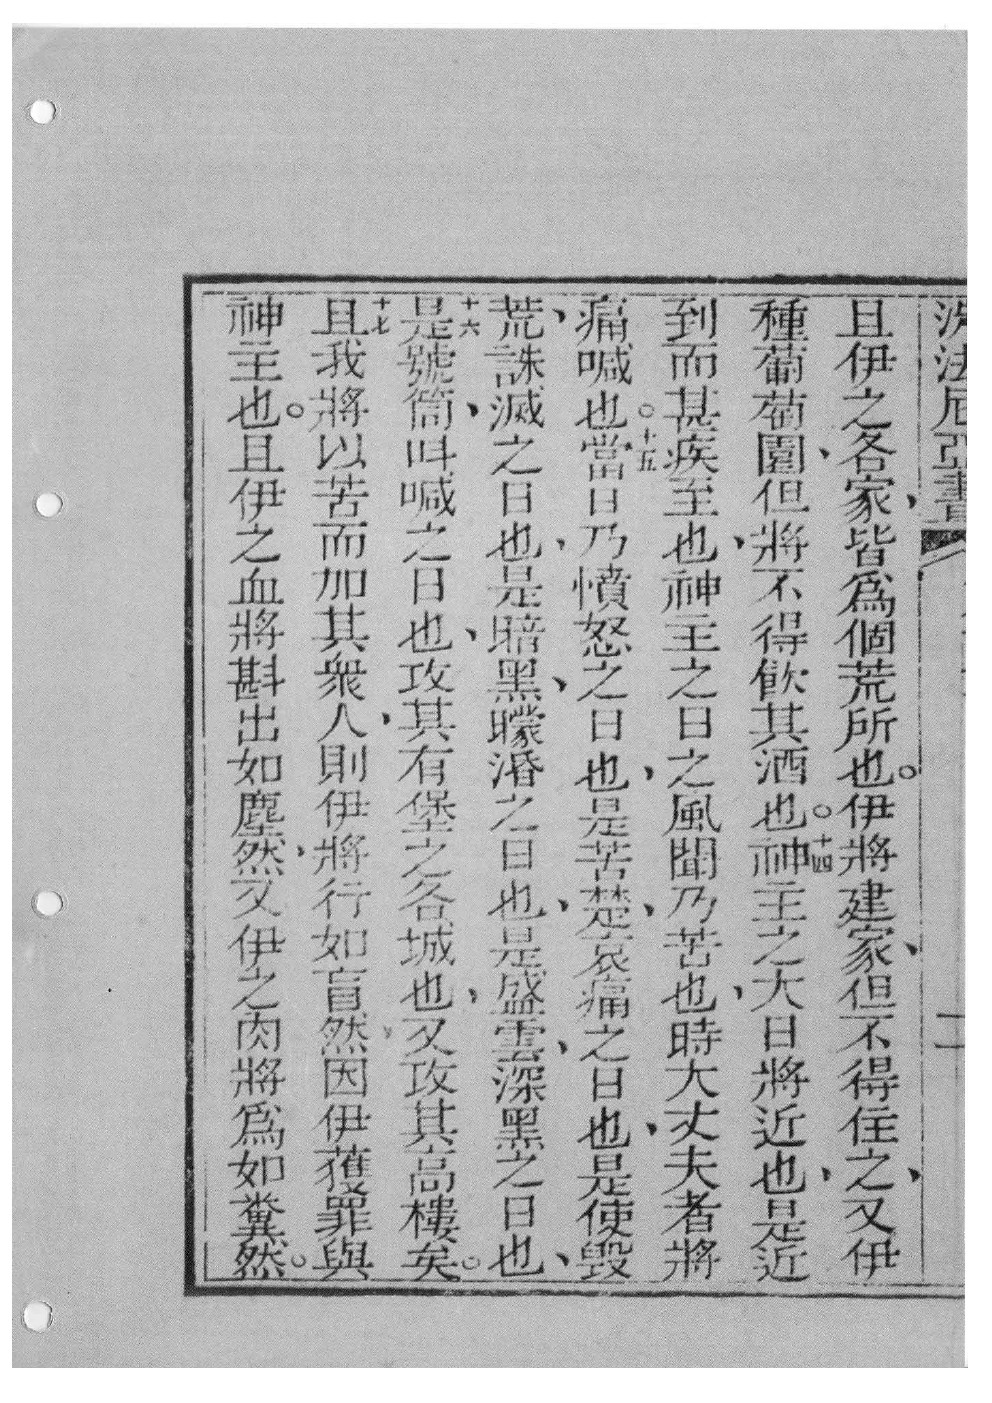 法尼亞書
且伊之各家、皆為個荒所也。伊將建家、但不得住之、又伊
種葡萄園、但將不得飲其酒也。十四神主之大日將近也、是近
到而甚疾至也、神主之日之風聞乃苦也、時大丈夫者將
痛喊也。十五當日乃憤怒之日也、是苦楚、哀痛之日也、是使毀
荒、誅滅之日也、是暗黑、矇涽之日也、是盛雲、深黑之日也、
十六是號筩、叫喊之日也、攻其有堡之各城也、又攻其高樓矣。
十七且我將以苦而加其衆人、則伊將行如盲然、因伊獲罪與
神主也。且伊之血將斟出如塵然、又伊之肉將為如糞然。